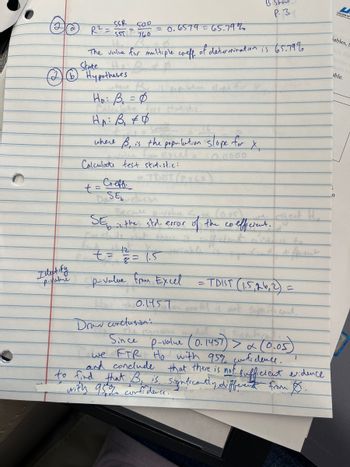 P. 3
(2) (a) R² = SSR/SST = 500/760 = 0.6579 = 65.79%
The value for multiple coeff of determination is 65.79%
State
(2) (b) Hypotheses
H₀: B₁ = Ø
Hₐ: B₁ ≠ Ø
where B₁ is the population slope for X₁
Calculate test statistic:
t = Coeff / SE_b
SE_b is the std. error of the coefficient.
t = 12/8 = 1.5
Identify
p-value
p-value from Excel = TDIST (1.5, 26, 2) =
0.1457
Draw conclusion:
Since p-value (0.1457) > α (0.05)
we FTR H₀ with 95% confidence.
and conclude that there is not sufficient evidence
to find that B₁ is significantly different from Ø
with 95% confidence.